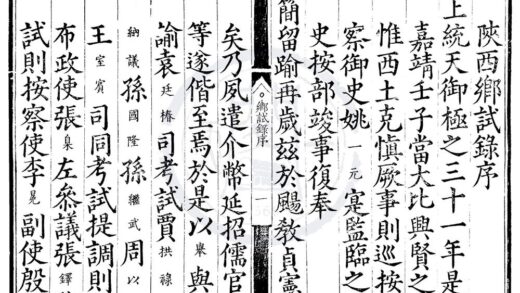 陝西鄉試錄序
上統天御極之三十一年是
嘉靖壬子當大比興賢之
惟西土克慎厥事則巡按
察御史姚一元寔監臨之
史按部竣事復奉
簡留踰再歲茲於颺敎貞憲
鄉試錄序 一
矣乃夙遣介幣延招儒官
等遂偕至焉於是以臯與
諭袁廷椿司考試賈拱祿
納議孫國隆孫繼武周以
王室賓司同考試提調則
布政使張臬左參議張鐸
試則按察使李冕副使殷